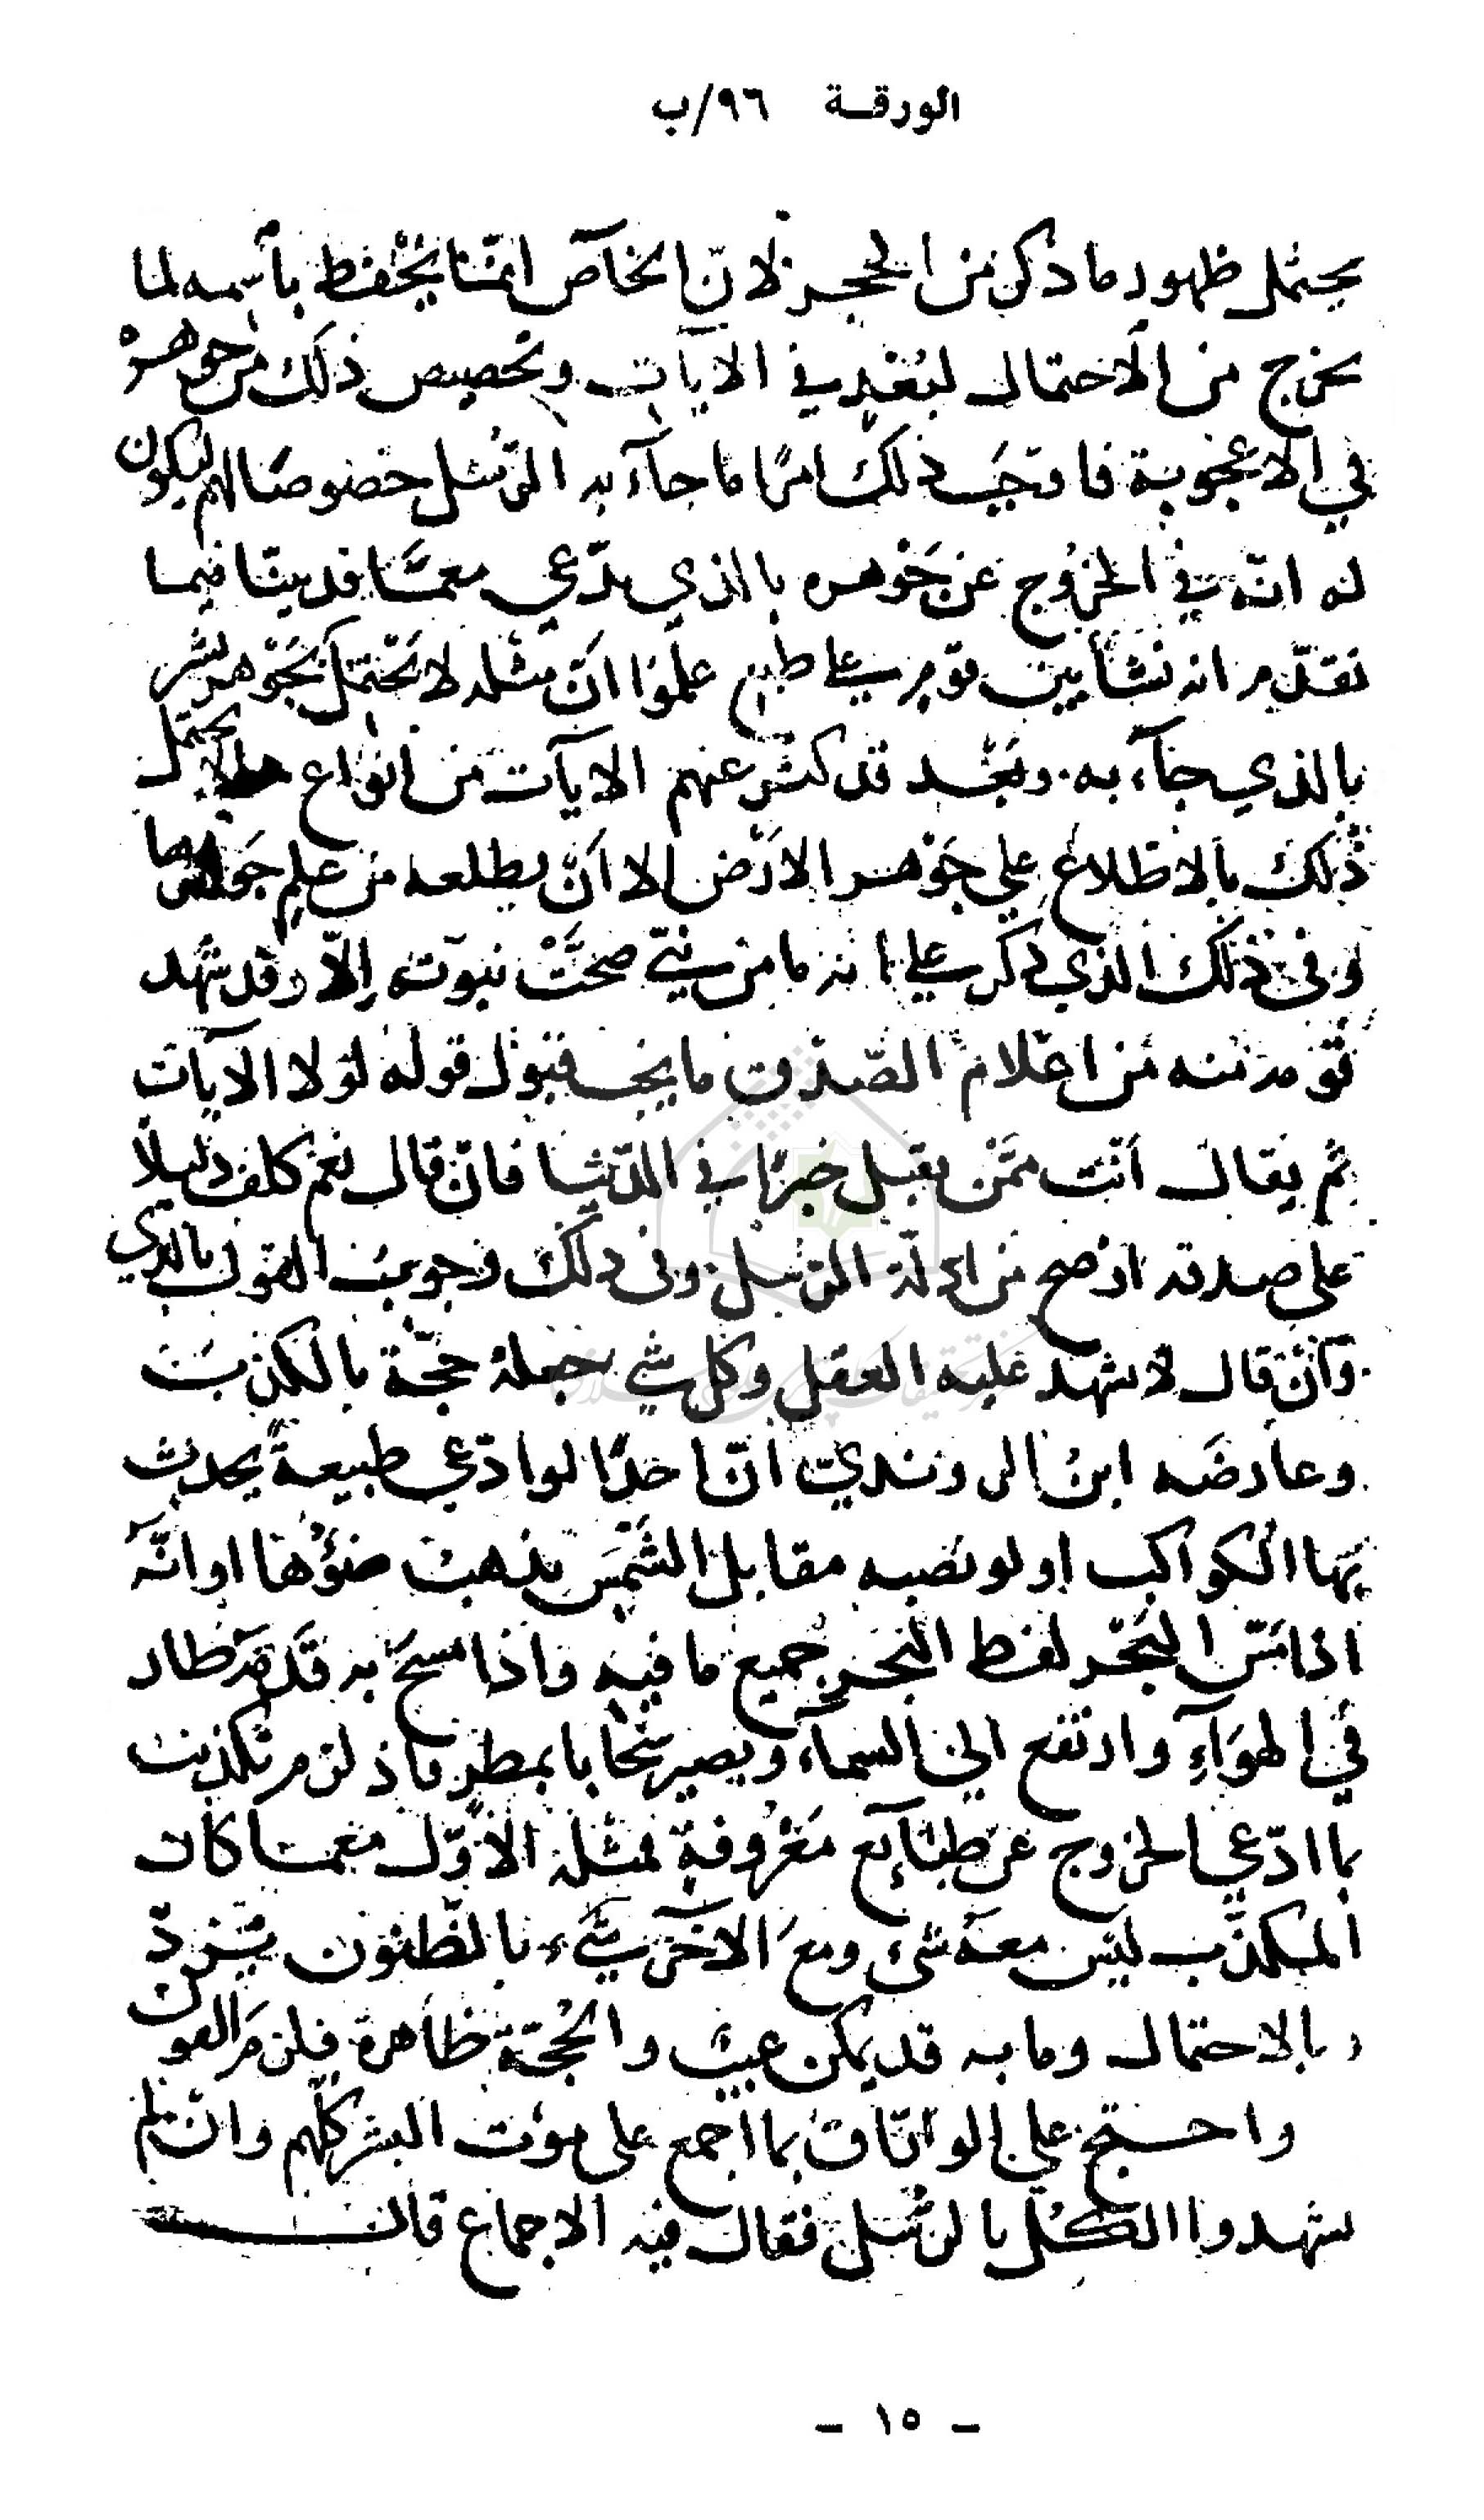 الورقة ٩٦/ب
يحتمل ظهور ما ذكر من الحجر لان الخاص انما يحفظ باسمه لما
يخرج من الاحتمال لبعد في الايات وتخصيص ذلك من جوهره
في الاعجوبة فاوجب ذلك امرا ما جاء به الرسل خصوصا لهم ليكون
له انه في الخروج عن جوهره بالذي يدعي معما قد بينا فيما
تقدم انه نشا بين قوم على طبع علموا ان مثله لا يحتمل بجوهر بشر
بالذي جاء به وبعد قد كثر عنهم الايات من انواع لا يحتمل
ذلك بالاطلاع على جوهر الارض الا ان يطلعه من علم جواهرها
وفي ذلك الذي ذكر على انه ما من نبي صحت نبوته الا وقد شهد
قومه منه من اعلام الصدق ما يجب قبول قوله لولا الايات
ثم يقال انت ممن يقبل خبرا في الدنيا فان قال نعم كلف دليلا
على صدقه اوضح من ادلة الرسل وفي ذلك وجوب القول بالذي
وان قال لا شهد عليه العقل وكل شي جعله حجة بالكذب
وعارضه ابن الروندي ان احدا لو ادعى طبيعة يحدث
بها الكواكب او لو نصبه مقابل الشمس يذهب ضوءها او انه
اذا مس البحر لفظ البحر جميع ما فيه واذا مسح به قدمه طار
في الهواء وارتفع الى السماء ويصير سحابا يمطر فاذ لزم تكذيب
ما ادعي الخروج عن طبايع معروفة لمثله الاول معما كان
المكذب ليس معه شى ومع الاخر شيء بالظنون يرد
وبالاحتمال وما به قد يمكن عيب والحجة ظاهرة فلزم القول
واحتج على الوراق بما اجمع على موت البشر كلهم وان لم
يشهدوا الكل بالرسل فقال فيه الاجماع قال
- ١٥ -